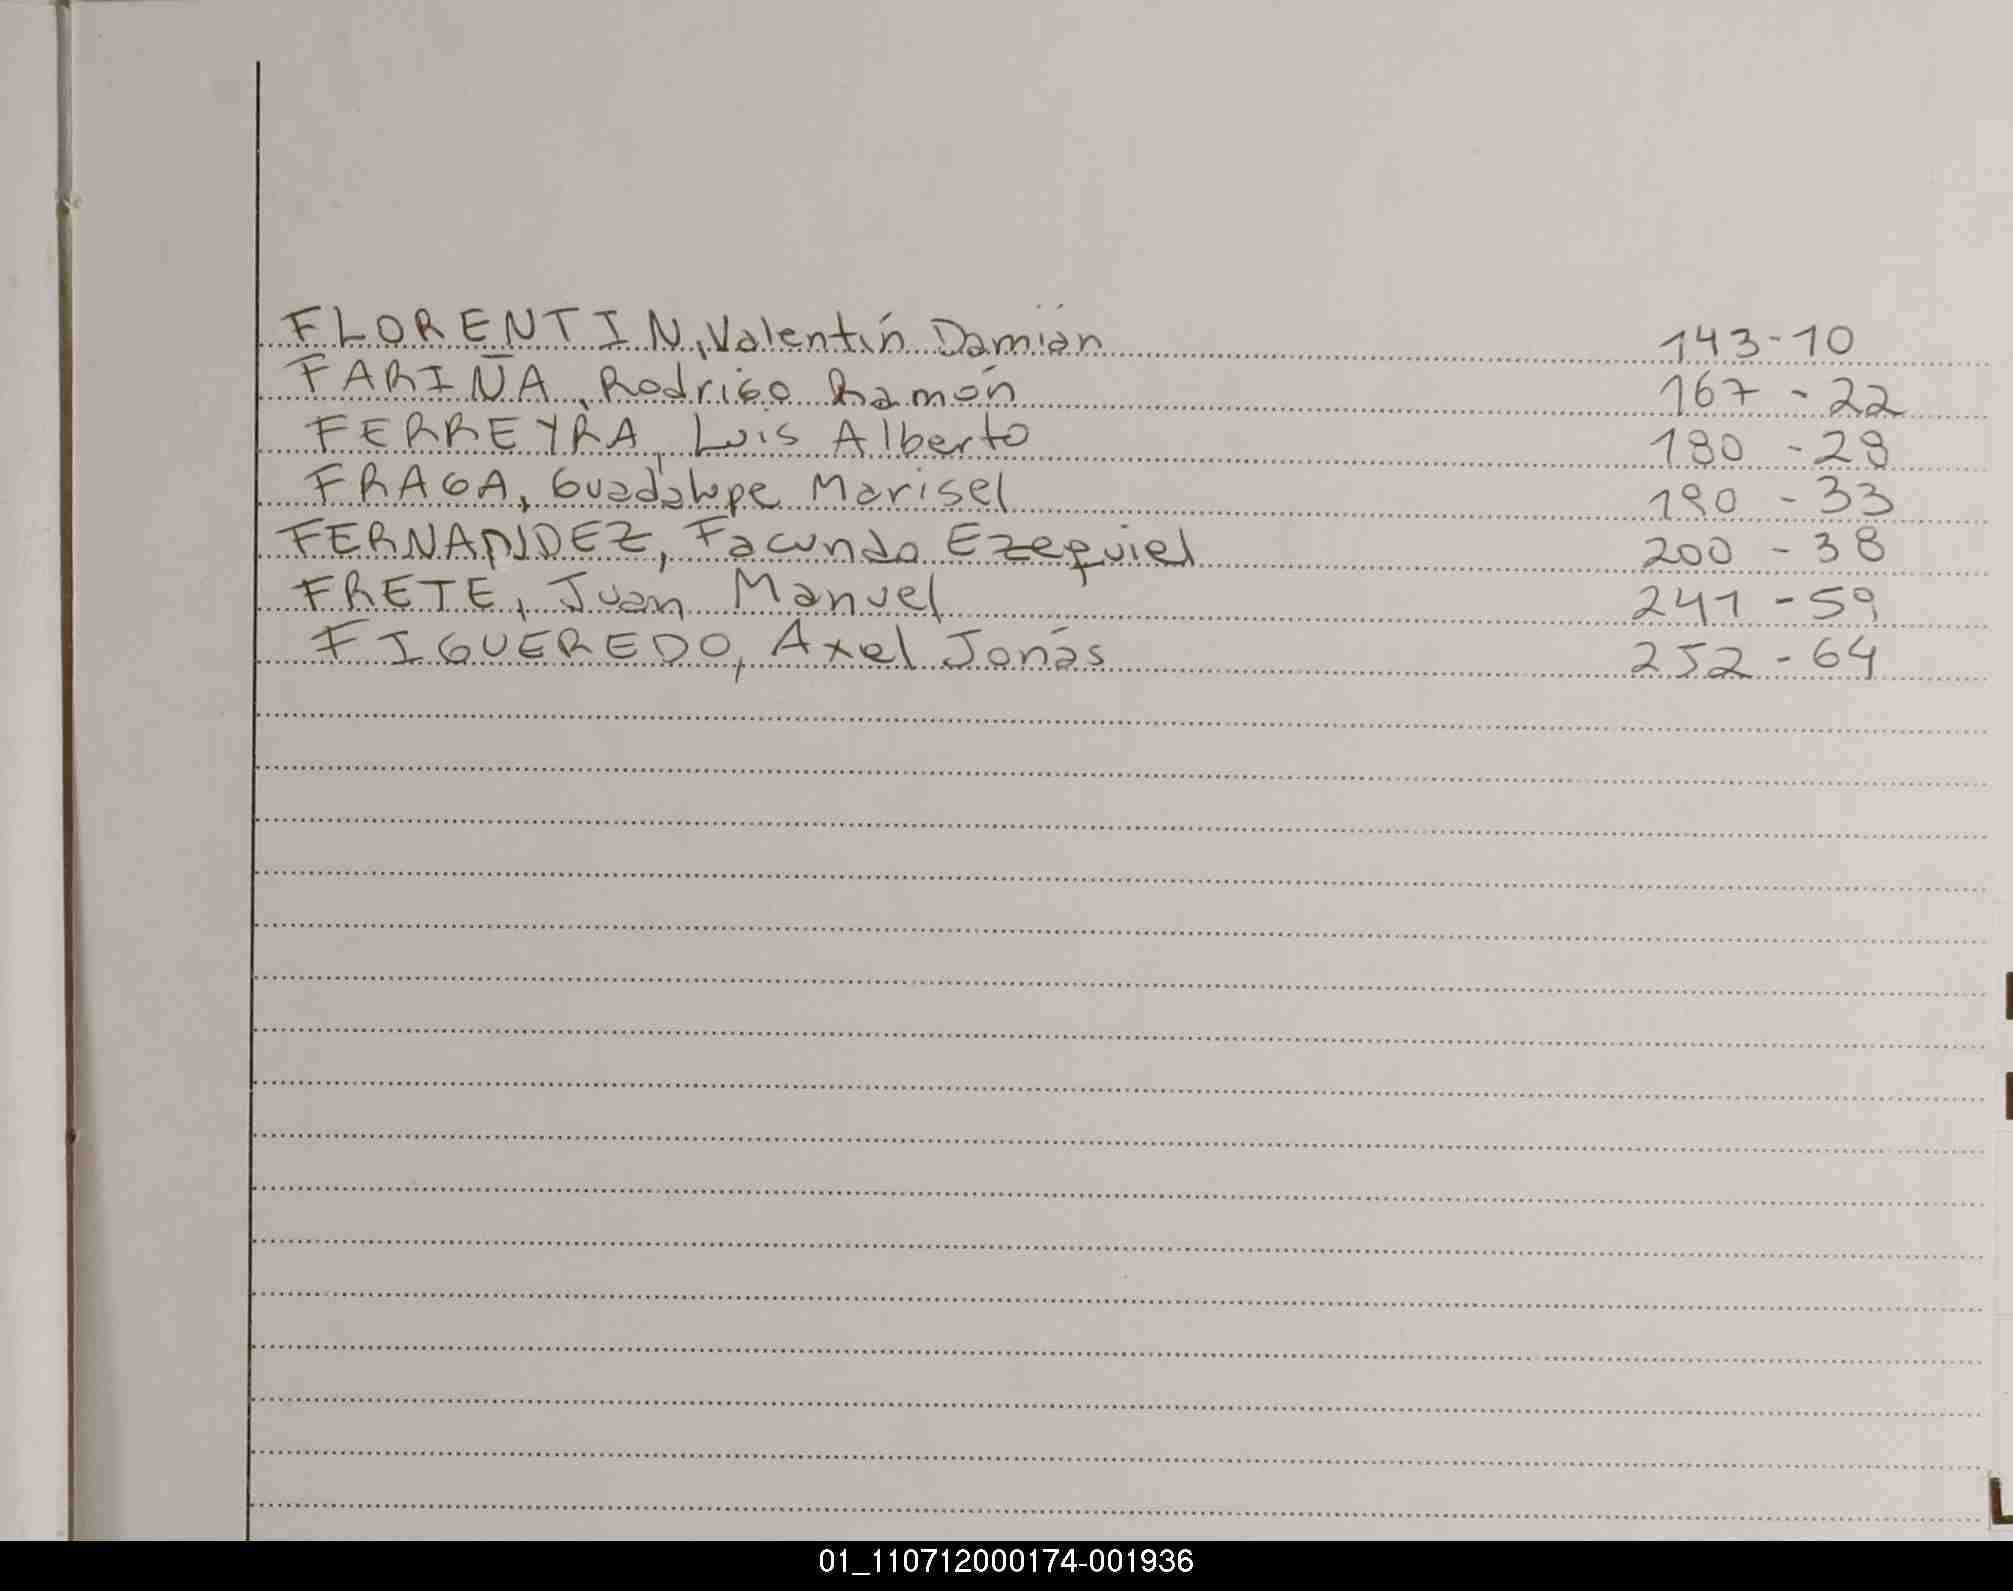 FLORENTIN, Valentín Damián 143-10
FARIÑA, Rodrigo Ramón 167 - 22
FERREYRA, Luis Alberto 180 - 28
FRAGA, Guadalupe Marisel 190 - 33
FERNANDEZ, Facundo Ezequiel 200 - 38
FRETE, Juan Manuel 241 - 59
FIGUEREDO, Axel Jonás 252 - 64
01_110712000174-001936